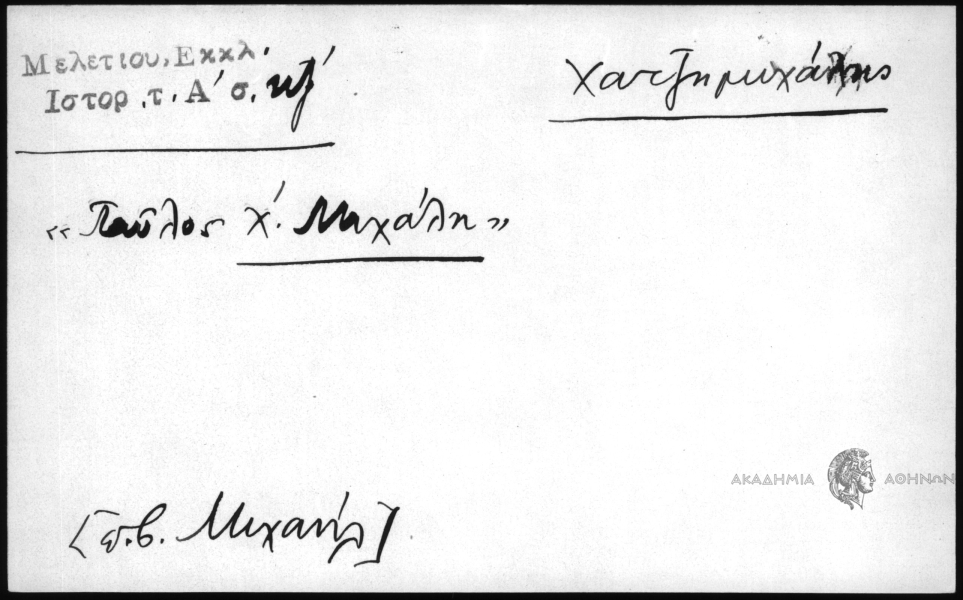 Μελετίου, Εκκλ.
Ιστορ. τ. Α΄ σ. κζ΄
Χατζημιχάλης
«Παῦλος Χ΄. Μιχάλη»
[π.β. Μιχαήλ]
ΑΚΑΔΗΜΙΑ ΑΘΗΝΩΝ